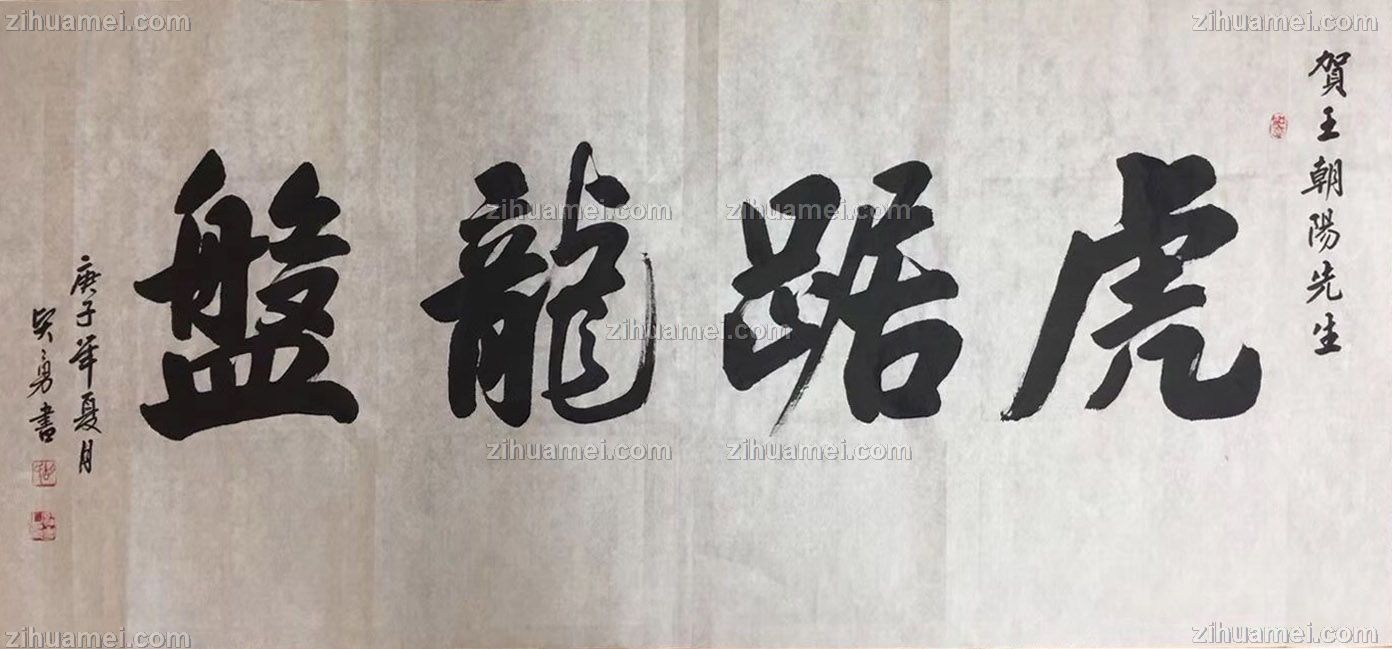 賀王朝陽先生
虎踞龍盤
庚子年夏月
勇書
zihuamei.com
zihuamei.com
zihuamei.com
zihuamei.com
zihuamei.com
zihuamei.com
zihuamei.com
zihuamei.com
zihuamei.com